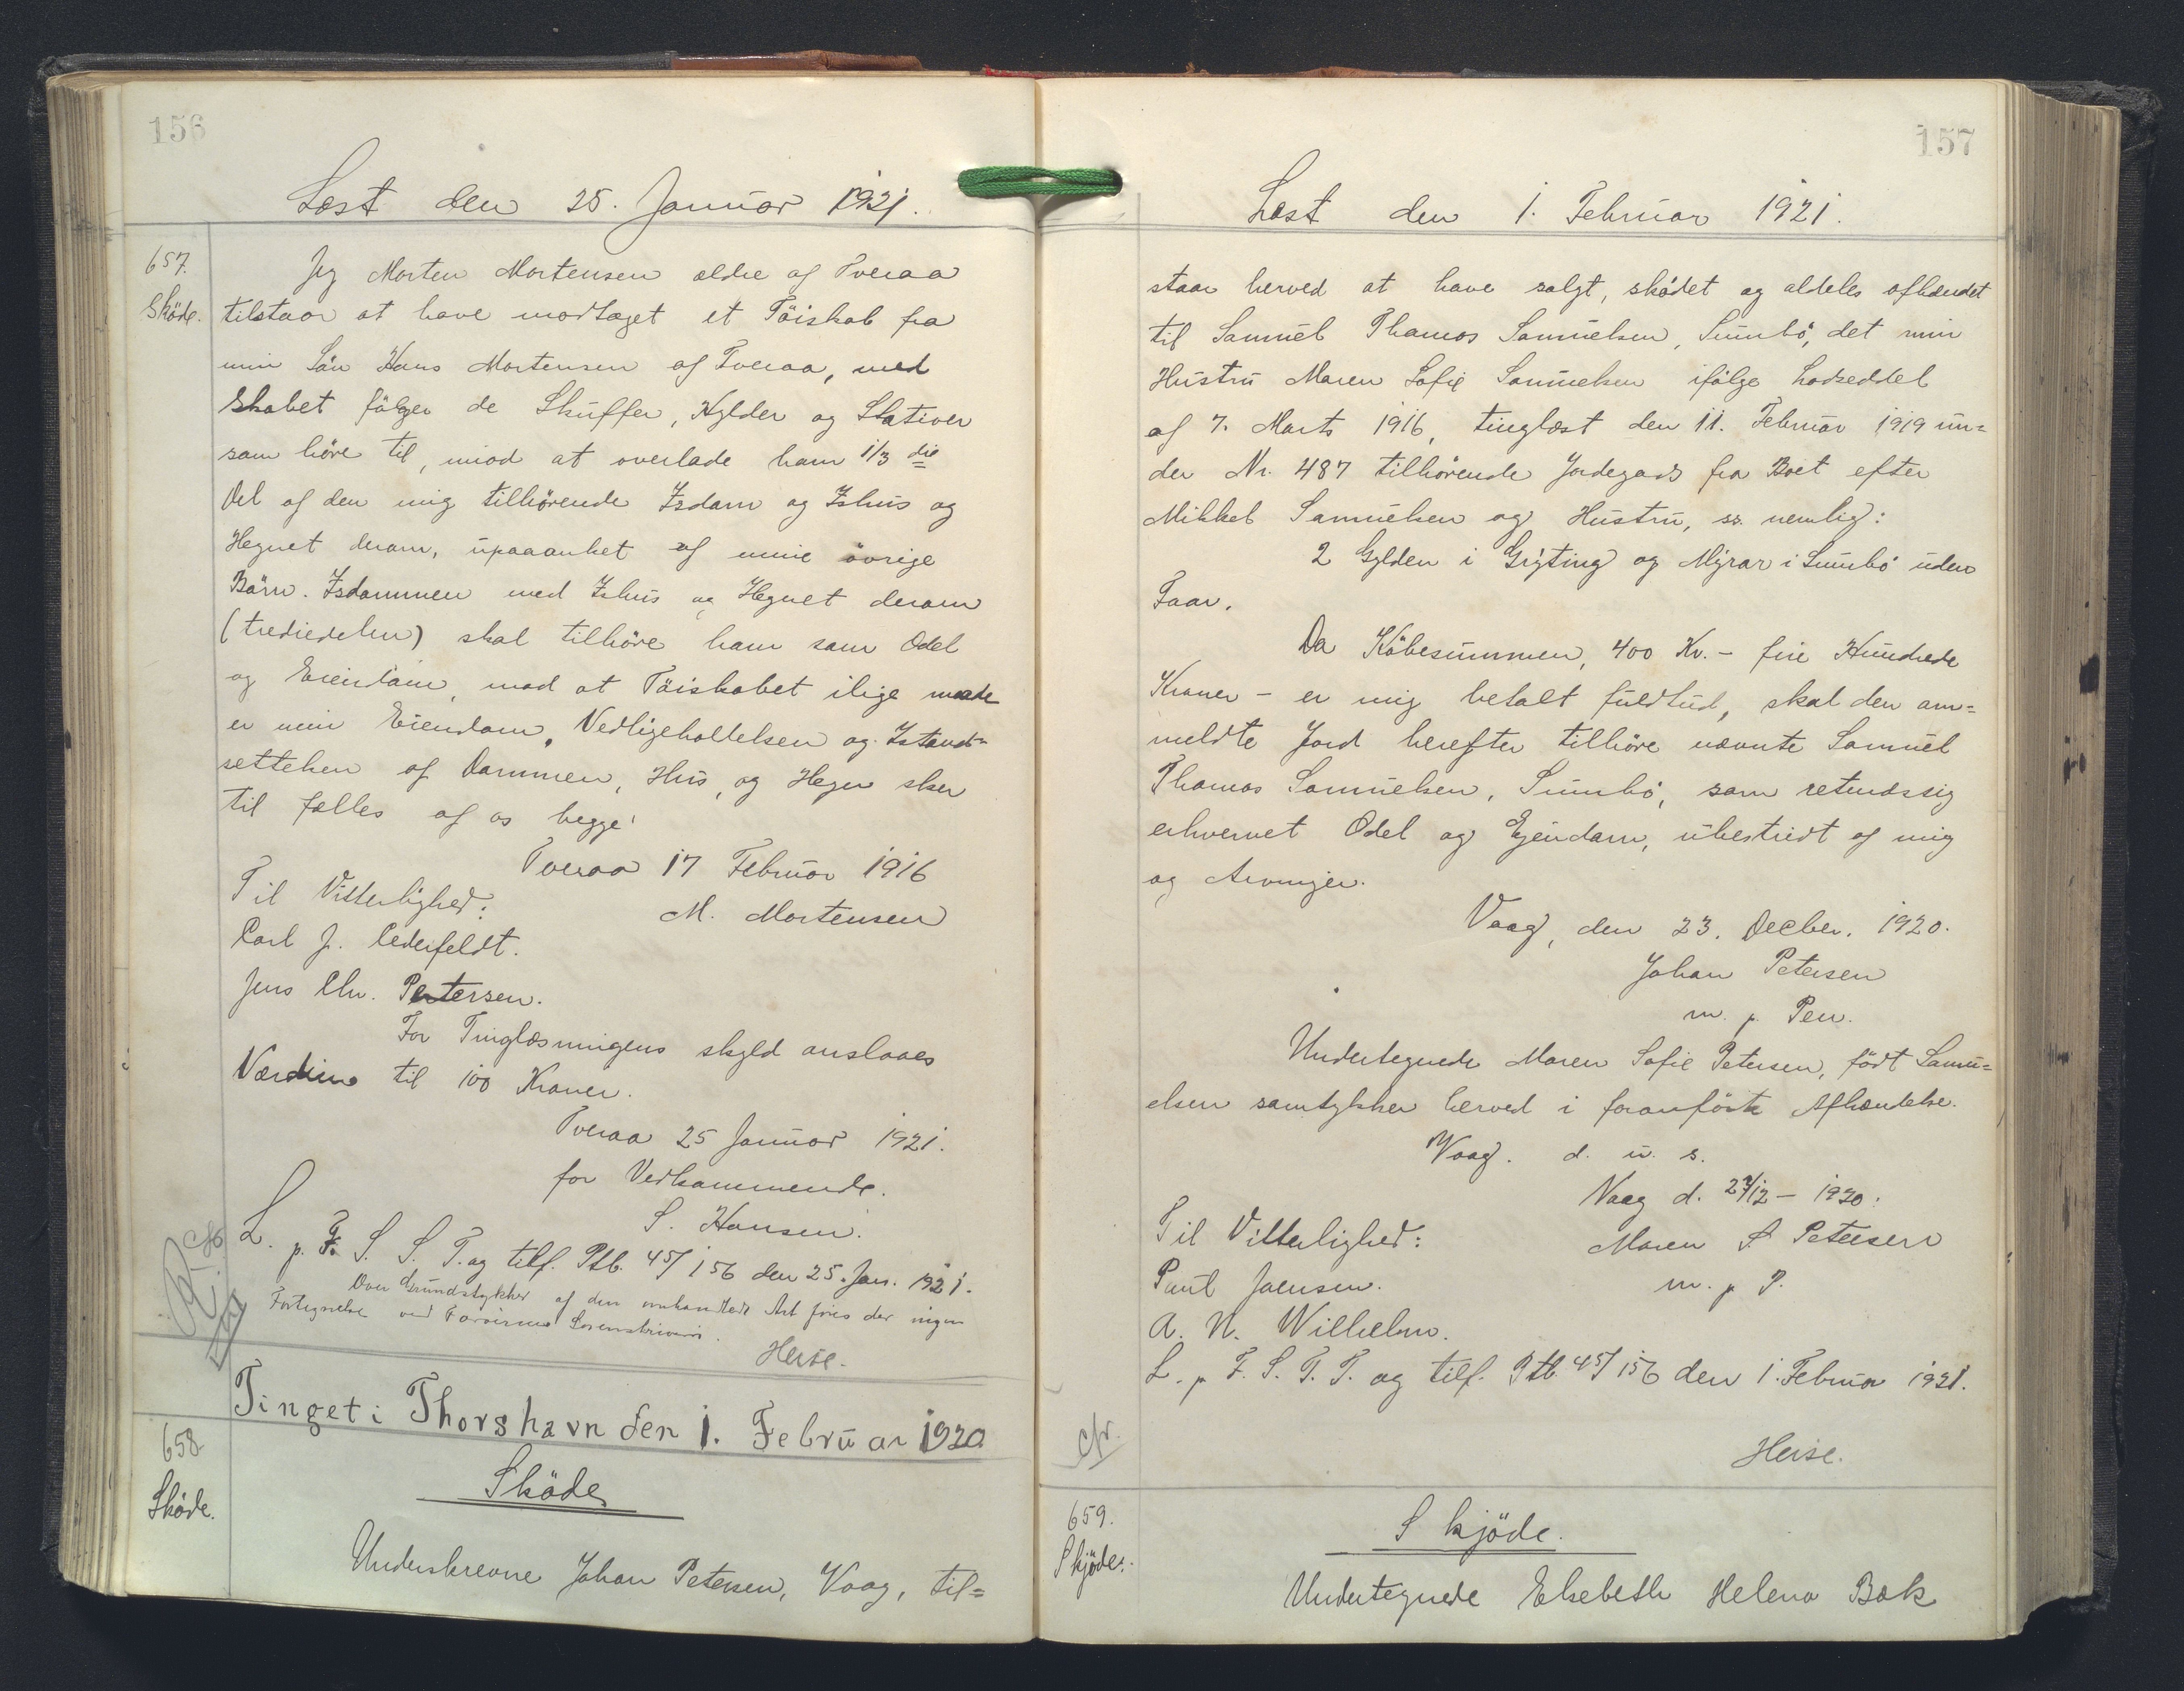 156
Læst den 25. Januar 1921.
657.
Sköde.
Jeg Morten Mortensen ældre af Tveraa
tilstaar at have modtaget et Töiskab fra
min Sön Hans Mortensen af Tveraa, med
Skabet fölger de Skuffer, Hylder og Stativer
som höre til, imod at overlade ham 1/3 die
Del af den mig tilhörende Isdam og Ishus og
Hegnet derom, upaaanket af mine övrige
Börn. Isdammen med Ishus og Hegnet derom
(trediedelen) skal tilhöre ham som Odel
og Eiendom, mod at Töiskabet ilige maade
er min Eiendom. Vedligeholdelsen og Istand=
settelsen af Dammen, Hus, og Hegn sker
til fælles af os begge.
Tveraa 17 Februar 1916
Til Vitterlighed:
M. Mortensen
Carl J. Cederfeldt.
Jens Chr. Petersen.
For Tinglæsningens skyld anslaaes
Værdien til 100 Kroner.
Tveraa 25 Januar 1921.
for Vedkommende.
S. Hansen.
L. p. F. S. S. T. og tilf. Ptb. 45/156 den 25. Jan. 1921.
Over Grundstykker af den omhandlede Art föres der ingen
Fortegnelse ved Færöernes Sorenskriveri.
Heise.
Tinget i Thorshavn den 1. Februar 1920
658
Sköde.
Sköde
Underskrevne Johan Petersen, Vaag, til=
157
Læst den 1. Februar 1921.
staar herved at have solgt, skødet og aldeles afhændet
til Samuel Thomas Samuelsen, Sumbö, det min
Hustru Maren Sofie Samuelsen ifölge Lodseddel
af 7. Marts 1916, tinglæst den 11. Februar 1919 un=
der Nr. 487 tilhörende Jordegods fra Boet efter
Mikkel Samuelsen og Hustru, ss. nemlig:
2 Gylden i Gryting og Myrar i Sumbö uden
Faar.
Da Köbesummen, 400 Kr. - fire Hundrede
Kroner - er mig betalt fuldtud, skal den om=
meldte Jord herefter tilhöre nævnte Samuel
Thomas Samuelsen, Sumbö, som retmæssig
erhvervet Odel og Ejendom, ubestridt af mig
og Arvinger.
Vaag, den 23. Decber. 1920.
Johan Petersen
m. p. Pen.
Undertegnede Maren Sofie Petersen, födt Samu=
elsen samtykker herved i foranförte Afhændelse.
Vaag. d. u. s.
Vaag d. 23/12 - 1920.
Til Vitterlighed:
Maren S Petersen
Poul Joensen.
m. p. P.
A. N. Wilhelm.
L. p. F. S. T. T. og tilf. Ptb. 45/156 den 1. Februar 1921.
cfr.
Heise.
659.
Skjöde.
Skjöde.
Undertegnede Elsebeth Helena Bæk